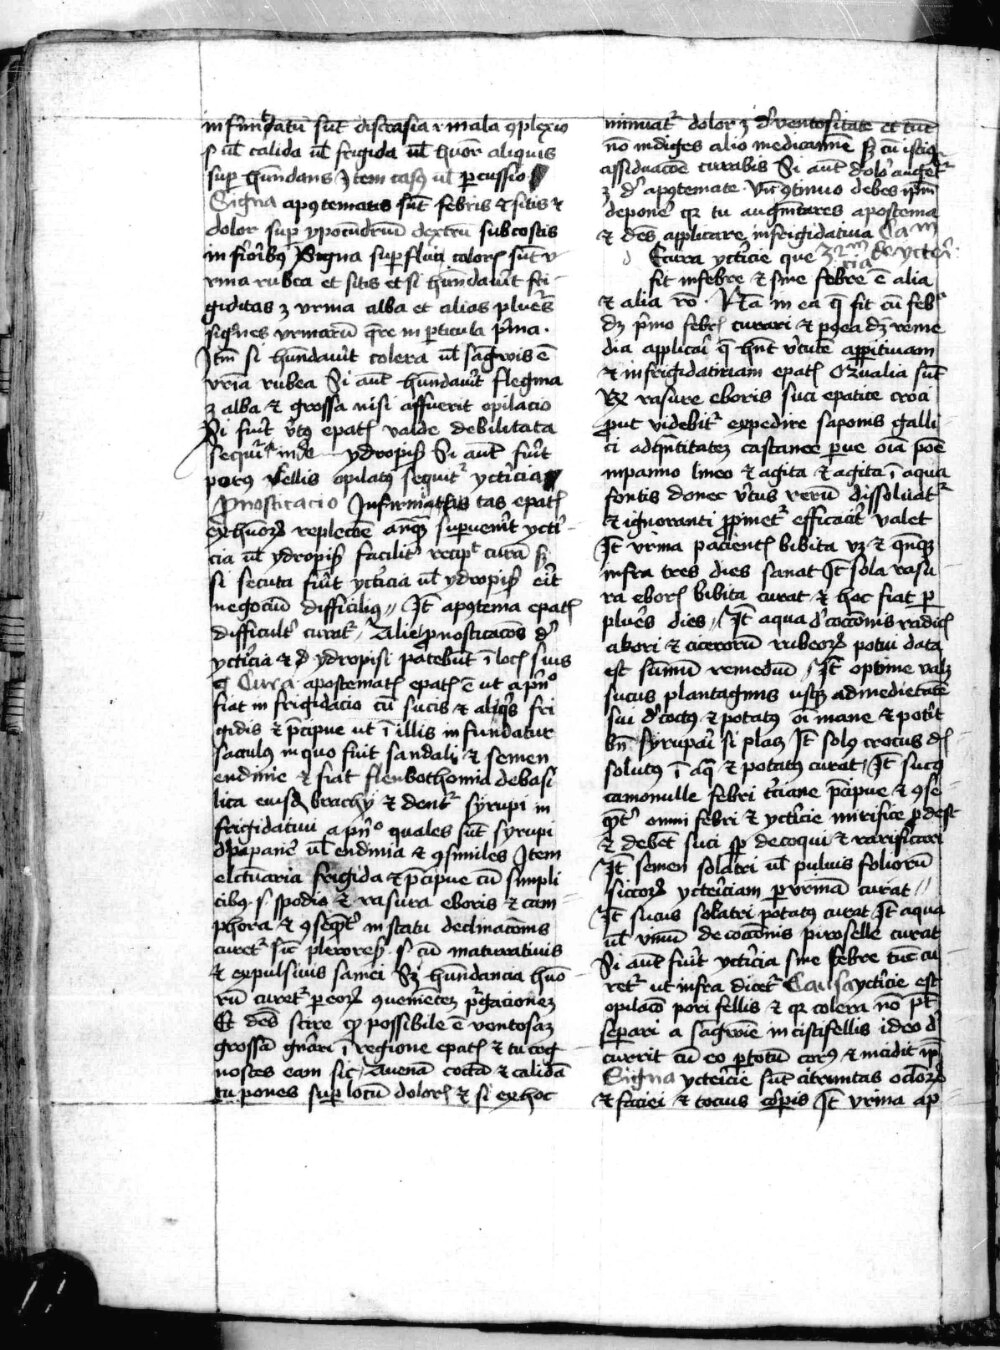 infundatū sūt discrasia ⁊ mala ꝯplexio
s̄ ul̄ calida ul̄ frigida ul̄ hūor aliquis
sup hūndans Itē casꝯ ul̄ percussio
Signa apostematis sūt febris ⁊ sitis ⁊
dolor sup ypocundriū dextrū sub costis
inferioribꝯ Signa superflui caloris sūt v
rina rubea et sitis et si hūndauīt fri
giditas ꝫ urina alba et alias plures
urinarū q̄re in perticula p̄ma
Itm̄ si hūndauīt colera ul̄ sāgwis ē
vrīa rubea Si aūt hūndauīt flegma
ꝫ alba ⁊ grossa nisi affuerit opilacio
Si fuīt v̄tꝯ epatꝭ valde debilitata
sequit᷑ inde ydropisꝭ Si aūt fuīt
porꝯ fellis opilatꝯ sequit᷑ yctīcia
Pnosticacio Infirmitas epatꝭ
ex hūoꝝ replecōe anq̄ꝫ supueīt ycti
cia ul̄ ydropisꝭ facilit᷑ recip̄t curā sꝫ
si secuta fuīt yctīcia ul̄ ydropisꝭ eīt
negociū difficiliꝯ Itē apostema epatꝭ
difficult᷑ curat᷑ Alie pnosticacōes d̄
yctīcia ⁊ d̄ ydropisi patebūt ī locꝭ suis
Cura apostematꝭ epatꝭ ē ut a p̄nᵒ
fiat infrigidacio cū sucis ⁊ aliqͥs fri
gidis ⁊ p̄cipue ut ī illis infundatur
saculꝯ in quo fuīt sandali ⁊ semen
endiuie ⁊ fiat flenbothomia de basi
lica eiusd brachij ⁊ dent᷑ syrupi in
frigidatiui a p̄nᵒ quales sūt syrupi
d̄ papauē ul̄ endiuia ⁊ ꝯsimiles Item
elctuaria frigida ⁊ p̄cipue cū simpli
cibꝯ s̄ spodio ⁊ rasura eboris ⁊ cam
phora ⁊ ꝯseqͤt᷑ in statu declinacōis
curet᷑ sic̄ plexoresꝭ s̄ cū maturatiuis
⁊ expulsiuis saniei Sꝫ hūndancia hūo
rū curet᷑ p eoꝝ ꝯuenientē p̄gacionē
Et debes scire qꝫ possibile ē ventosā
grossā gn̄ari ī regione epatꝭ ⁊ tu cog
nosces eam sic Auenā coctā ⁊ calidā
tu pones sup locū dolorꝭ ⁊ si ex hoc
minuat᷑ dolor ꝫ d̄ ventositate et tūc
nō indiges alio medicamine sꝫ cū istiꝯ
assiduacōe curabis Si aūt dolor auget᷑
ꝫ d̄ apostemate Vn̄ ꝯtinuo debes ip̄m
deponē qꝛ tu augmētares apostema
⁊ des applicare infrigidatiua Cam
Cura yctīcie que de ycteri
fit in febre ⁊ sine febre ē alia cia
⁊ alia rō Nā in ea q̄ fit cū febᵉ
dꝫ p̄mo febrꝭ curari ⁊ postea dꝫ reme
dia applicari q̄ hn̄t v̄tutē appitiuam
⁊ infrigidatiuam epatꝭ Qualia sūt
Rx rasure eboris suci epatice croci
put videbit᷑ expedire saponis galli
ci ad qn̄titatē castanee parue oīa pone
in panno lineo ⁊ agita ⁊ agita ī aqua
fontis donec v̄tus rerū dissoluat᷑
⁊ ignoranti ppinet᷑ efficacit᷑ valet
Itē urina pacientꝭ bibita vꝫ ⁊ qn̄qꝫ
infra tres dies sanat Itē sola rasu
ra eborꝭ bibita curat ⁊ hoc fiat p
plures dies Itē aqua d̄coccōnis radicꝭ
akori ⁊ cicerorū rubeoꝝ potui data
est sūmū remediū Itē optime valꝫ
sucus plantaginis usqꝫ ad medietatē
sui d̄coctꝯ ⁊ potatꝯ oī mane ⁊ potīt
bn̄ syrupari si plaꝫ Itē solꝯ crocus dꝭ
solutꝯ ī aq̄ ⁊ potatꝯ curat Itē sucꝯ
camomille febri t᷑ciane p̄cipue ⁊ ꝯse
qͤt᷑ omni febri ⁊ yctīcie mirifice pdest
⁊ debet suci sp decoqui ⁊ rarificari
Itē semen solatri ul̄ puluis foliorū
siccoꝝ yctericiam p urinā curat
Itē sucus solatri potatꝯ curat Itē aqua
ul̄ vinū decoccōnis piroselle curat
Si aūt fuīt yctīcia sine febre tūc cu
ret᷑ ut infra dicet᷑ Causa yctīcie est
opilacō pori fellis ⁊ qꝛ colera nō pt̄
separi a sāgwine in cistifellis ideo d̄
currit cū eo p totū corpꝯ ⁊ incidit ip̄m
Signa yctericie sūt citrinitas ocloꝝ
⁊ faciei ⁊ tocius corpis Itē vrina ap